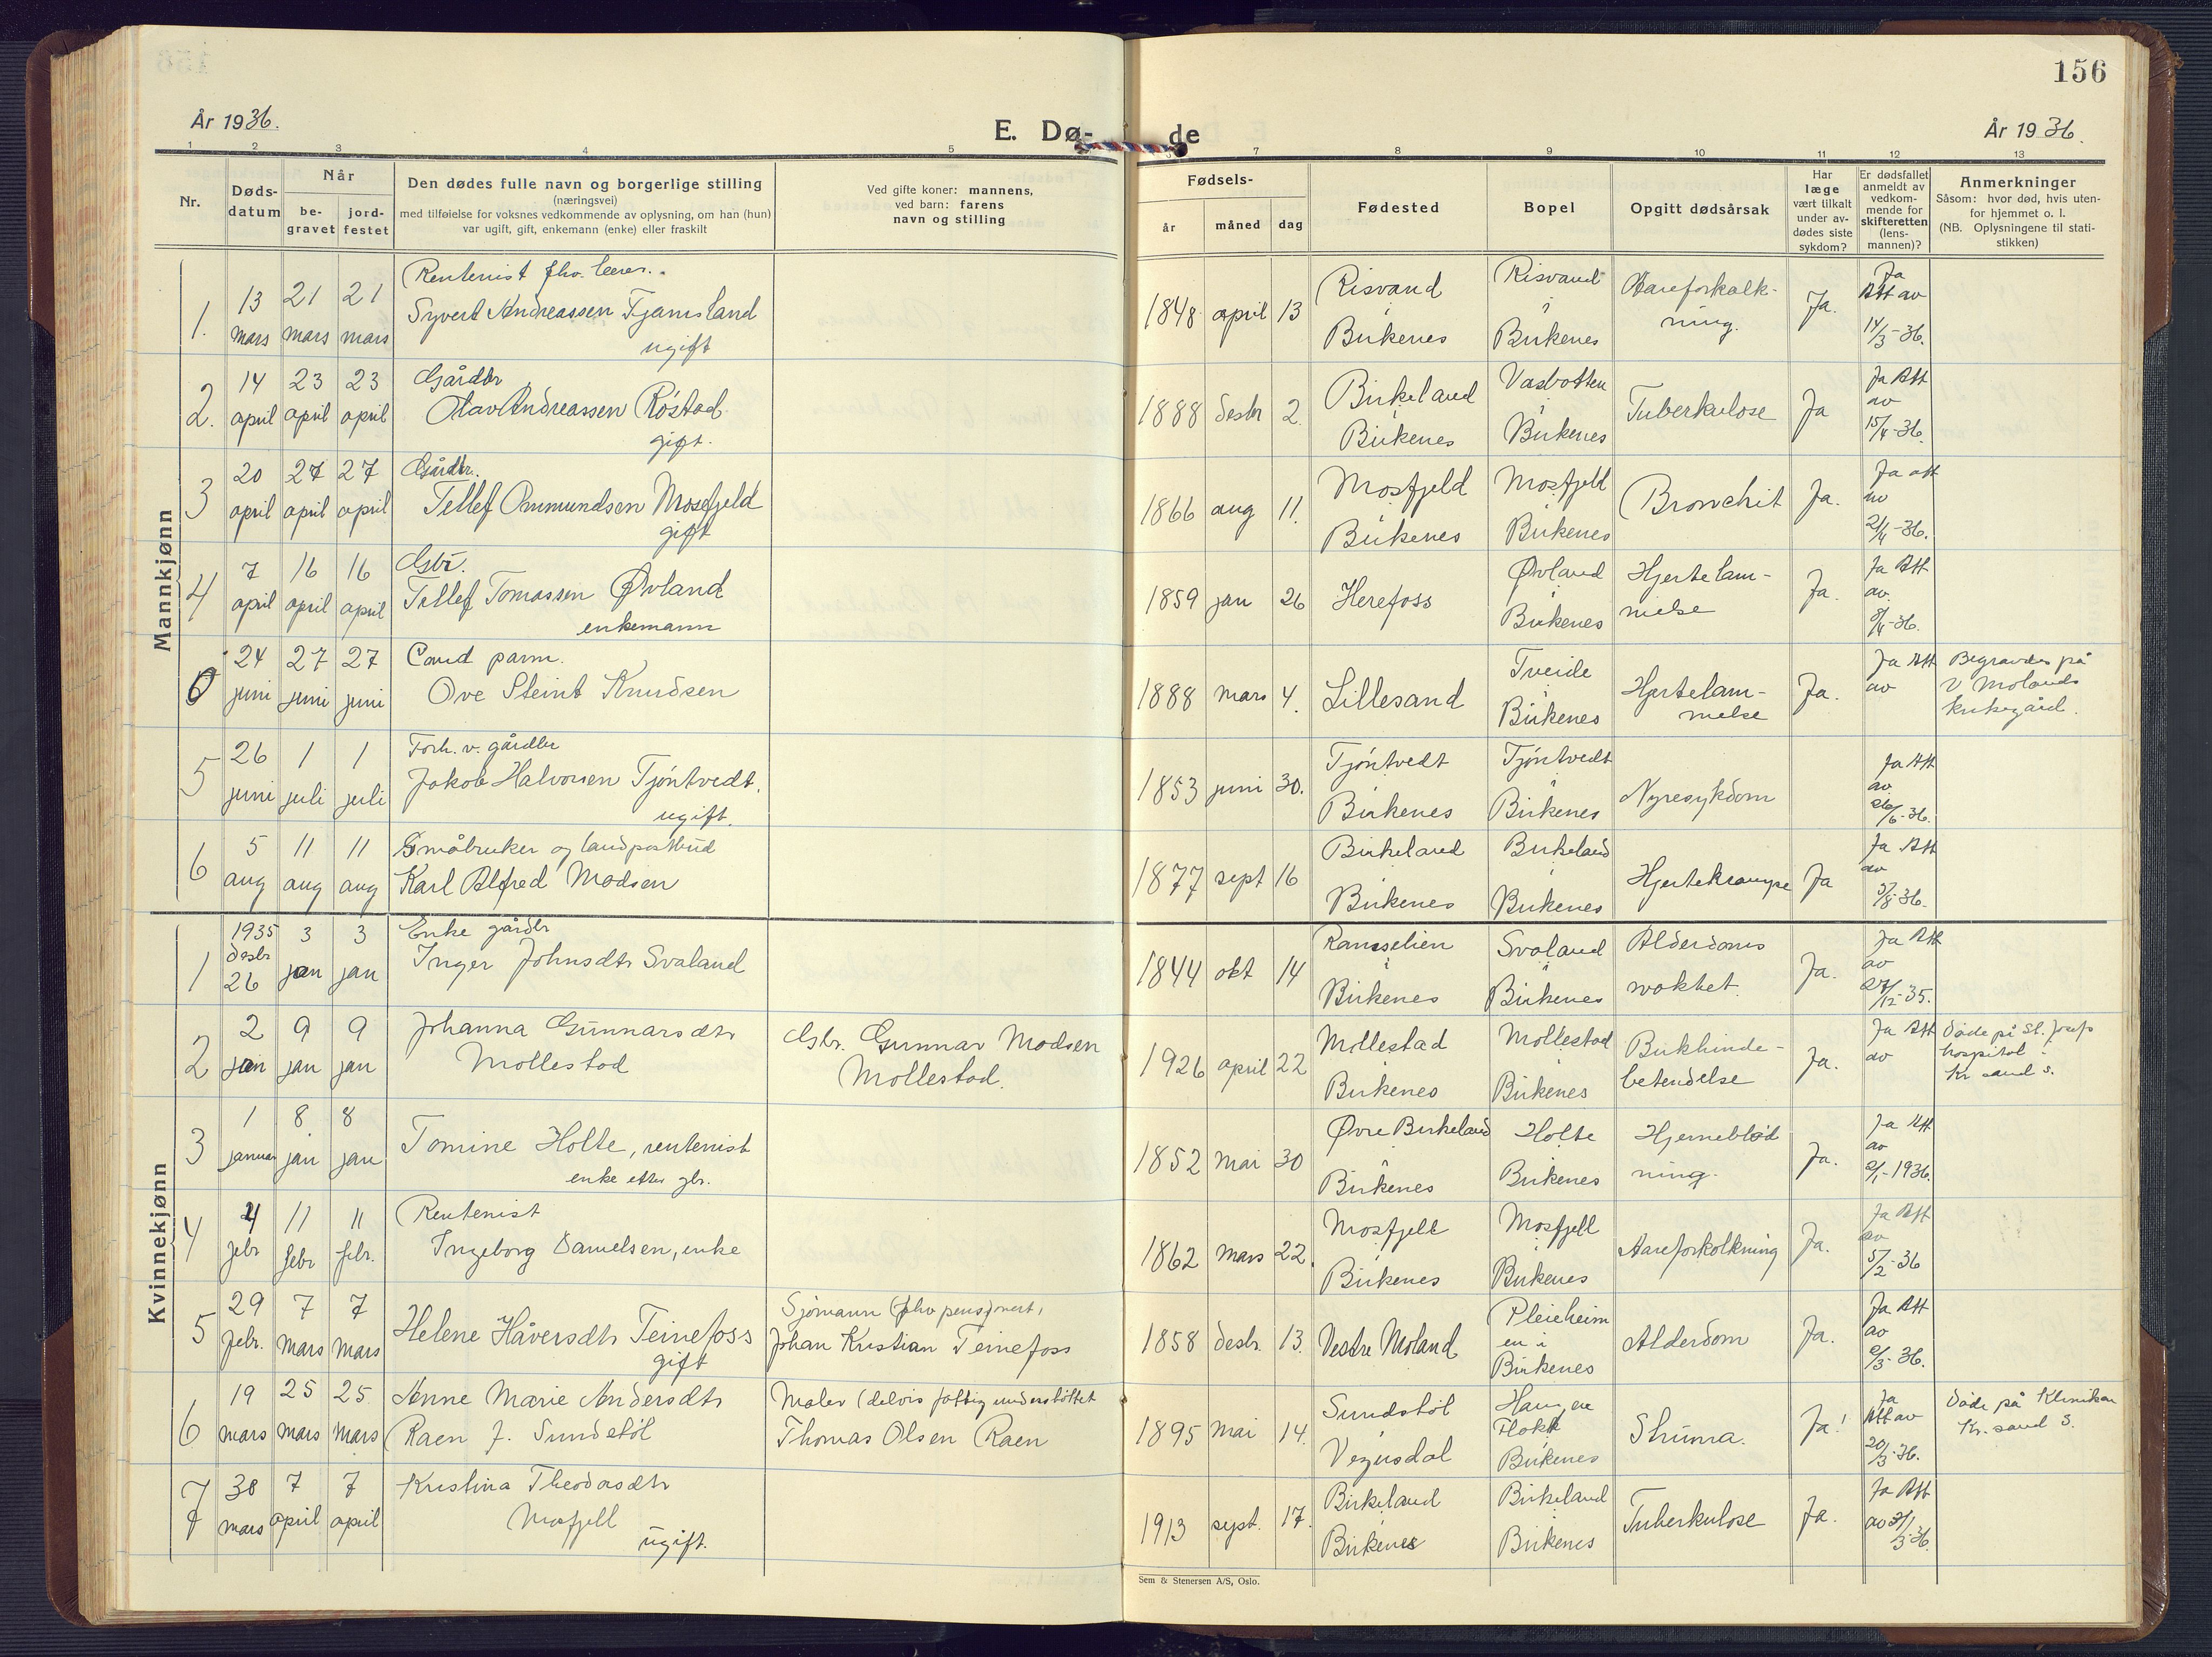 156
År 1936.
E. Dø-
de
År 1936.
1 2 3 4 5 7 8 9 10 11 12 13
Nr.
Døds-
datum
Når
be-
gravet
jord-
festet
Den dødes fulle navn og borgerlige stilling
(næringsvei)
med tilføielse for voksnes vedkommende av oplysning, om han (hun)
var ugift, gift, enkemann (enke) eller fraskilt
Ved gifte koner: mannens,
ved barn: farens
navn og stilling
Fødsels-
år
måned
dag
Fødested
Bopel
Opgitt dødsårsak
Har
læge
vært tilkalt
under av-
dødes siste
sykdom?
Er dødsfallet
anmeldt av
vedkom-
mende for
skifteretten
(lens-
mannen)?
Anmerkninger
Såsom: hvor død, hvis uten-
for hjemmet o. l.
(NB. Oplysningene til stati-
stikken)
Mannkjønn
1. 13 mars 21 mars 21 mars
Rentenist fhv. lærer.
Syvert Andreassen Tjamsland
ugift
1848 april 13
Risvand i Birkenes
Risvand i Birkenes
Aareforkalk-
ning.
Ja.
Ja Att av 14/3-36.
2. 14 april 23 april 23 april
Gårdbr
Olav Andreassen Røstad.
gift.
1888 desbr 2.
Birkeland i Birkenes
Vasbotten i Birkenes
Tuberkulose
Ja
Ja Att av 15/4-36.
3 20 april 27 april 27 april
Gårdbr.
Tellef Ommundsen Mosfjeld
gift
1866 aug 11.
Mosfjeld i Birkenes
Mosfjeld i Birkenes
Bronchit
Ja.
Ja att av 21/4-36.
4 7 april 16 april 16 april
Gbr.
Tellef Tomassen Øvland
enkemann
1859 jan 26
Herefoss
Øvland i Birkenes
Hjertelam-
melse
Ja.
Ja Att av. 8/4-36.
0 24 juni 27 juni 27 juni
Cand parm.
Ove Steint Knudsen
1888 mars 4.
Lillesand
Tveide i Birkenes
Hjertelam-
melse
Ja.
Ja Att av
Begravdes på
V Molands
kirkegård.
5 26 juni 1 juli 1 juli
Forh. v. gårdbr
Jakob Halvorsen Tjöntvedt.
ugift.
1853 juni 30.
Tjöntvedt i Birkenes
Tjöntvedt i Birkenes
Nyresykdom
Ja Att av 26/6-36.
6 5 aug 11 aug 11 aug
Småbruker og landpostbud
Karl Alfred Madsen
1877 sept 16
Birkeland i Birkenes
Birkeland i Birkenes
Hjertekrampe
Ja
Ja Att av 5/8-36.
Kvinnekjønn
1 1935 desbr 26 3 jan 3 jan
Enke gårdbr
Inger Johnsdtr Svaland
1844 okt 14
Ramselien i Birkenes
Svaland i Birkenes
Alderdoms
svakhet.
Ja.
Ja Att av 27/12-35.
2 2 jan 9 jan 9 jan
Johanna Gunnarsdtr
Mollestad
Gbr. Gunnar Madsen
Mollestad.
1926 april 22
Mollestad i Birkenes
Mollestad i Birkenes
Bukhinde-
betendelse
Ja.
Ja Att av
Døde på St. Josefs
hospital i
Kr sand s.
3 1 januar 8 jan 8 jan
Tomine Holte, rentenist
enke etter gbr.
1852 mai 30
Øvre Birkeland i Birkenes
Holte i Birkenes
Hjerneblød
ning.
Ja.
Ja Att av 2/1-1936.
4 4 febr 11 febr 11 febr.
Rentenist
Ingeborg Danielsen, enke
1862 mars 22.
Mosfjell i Birkenes
Mosfjell i Birkenes
Aareforkalkning
Ja.
Ja Att av 5/2-36
5 29 febr. 7 mars 7 mars
Helene Håversdtr Teinefoss
gift
Sjömann (fhv pensjonert,
Johan Kristian Teinefoss
1858 desbr. 13.
Vestre Moland
Pleieheim
en i
Birkenes
Alderdom
Ja.
Ja Att av 2/3-36.
6 19 mars 25 mars 25 mars
Anne Marie Andersdtr
Raen f. Sundstöl
Maler (delvis fattig understöttet
Thomas Olsen Raen
1895 mai 14.
Sundstöl
Vegusdal
Flakk
Birkenes
Struma.
Ja!
Ja Att av 20/3-36.
Døde på Klinikken
Kr. sand S.
7 30 mars 7 april 7 april
Kristina Theodorsdtr
Mosfjell
ugift.
1913 sept. 17.
Birkeland i Birkenes
Birkeland i Birkenes
Tuberkulose
Ja.
Ja Att av 31/3-36.
Sem & Stenersen A/S, Oslo.